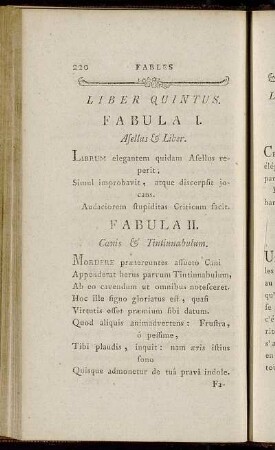 220 FABLES
LIBER QUINTUS.
FABULA I.
Aſellus & Liber.
LIBRUM elegantem quidam Aſellus re-
perit,
Simul improbavit, atque diſcerpſit jo-
cans.
Audaciorem ſtupiditas Criticum facit.
FABULA II.
Canis & Tintinnabulum.
MORDERE prætereuntes aſſueto Cani
Appenderat herus parvum Tintinnabulum,
Ab eo cavendum ut omnibus noteſceret.
Hoc ille ſigno gloriatus eſt, quaſi
Virtutis eſſet præmium ſibi datum.
Quod aliquis animadvertens: Fruſtra,
ô peſſime,
Tibi plaudis, inquit: nam æris iſtius
ſono
Quiſque admonetur de tuâ pravâ indole.
Fa-